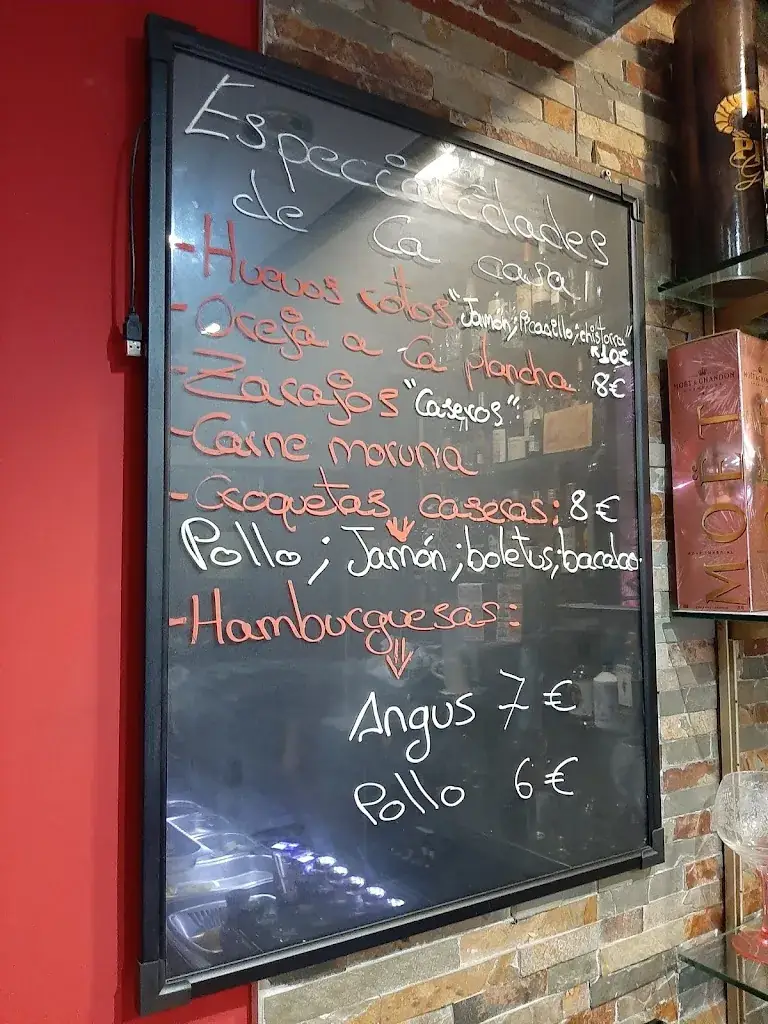 Especialidades
de la casa!
- Huevos rotos "Jamón; Picadillo; chistorra"
10€
- Oreja a la plancha 8€
- Zarajos "Caseros".
- Carne moruna
- Croquetas caseras: 8€
Pollo; Jamón; boletus; bacalao.
- Hamburguesas:
Angus 7€
Pollo 6€
MOËT & CHANDON
MOËT